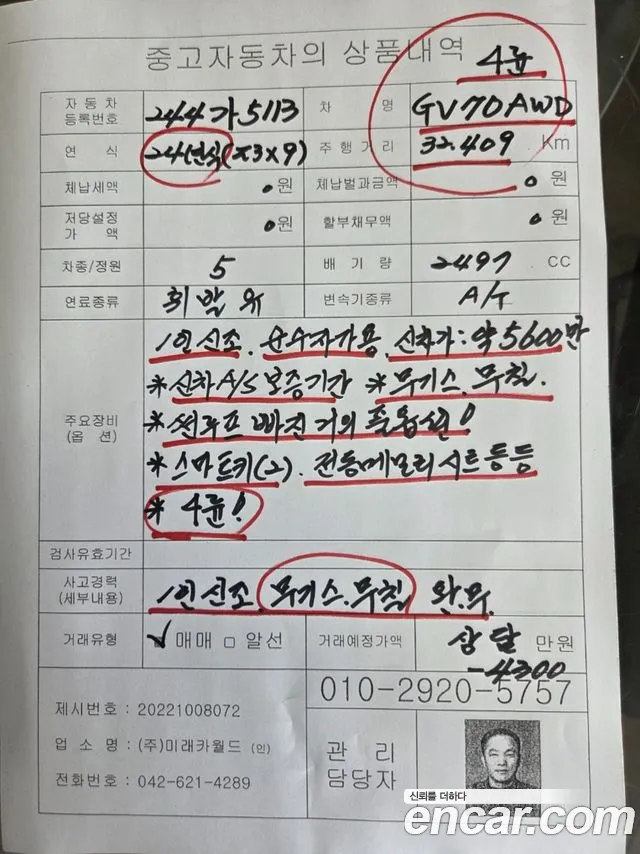 중고자동차의 상품내역
4륜
자동차 등록번호 244가5113 차 명 GV70 AWD
연 식 24년식(23x9) 주행거리 32.409 Km
체납세액 0원 체납벌과금액 0원
저당설정 가 액 0원 할부채무액 0원
차종/정원 5 배 기 량 2497 CC
연료종류 휘발유 변속기종류 A/T
주요장비 (옵 션)
1인신조. 순수자가용. 신차가:약5600만
*신차A/S보증기간 *무기스.무칠.
*썬루프 빠진 거의 풀옵션!
*스마트키(2). 전동메모리시트등등
*4륜!
검사유효기간
사고경력 (세부내용) 1인신조. 무기스.무칠 완.무.
거래유형 ✓매매 □ 알선 거래예정가액 상담 만원
-4300
010-2920-5757
제시번호 : 20221008072
업 소 명 : (주)미래카월드 (인)
전화번호 : 042-621-4289
관 리
담당자
신뢰를 더하다
encar.com